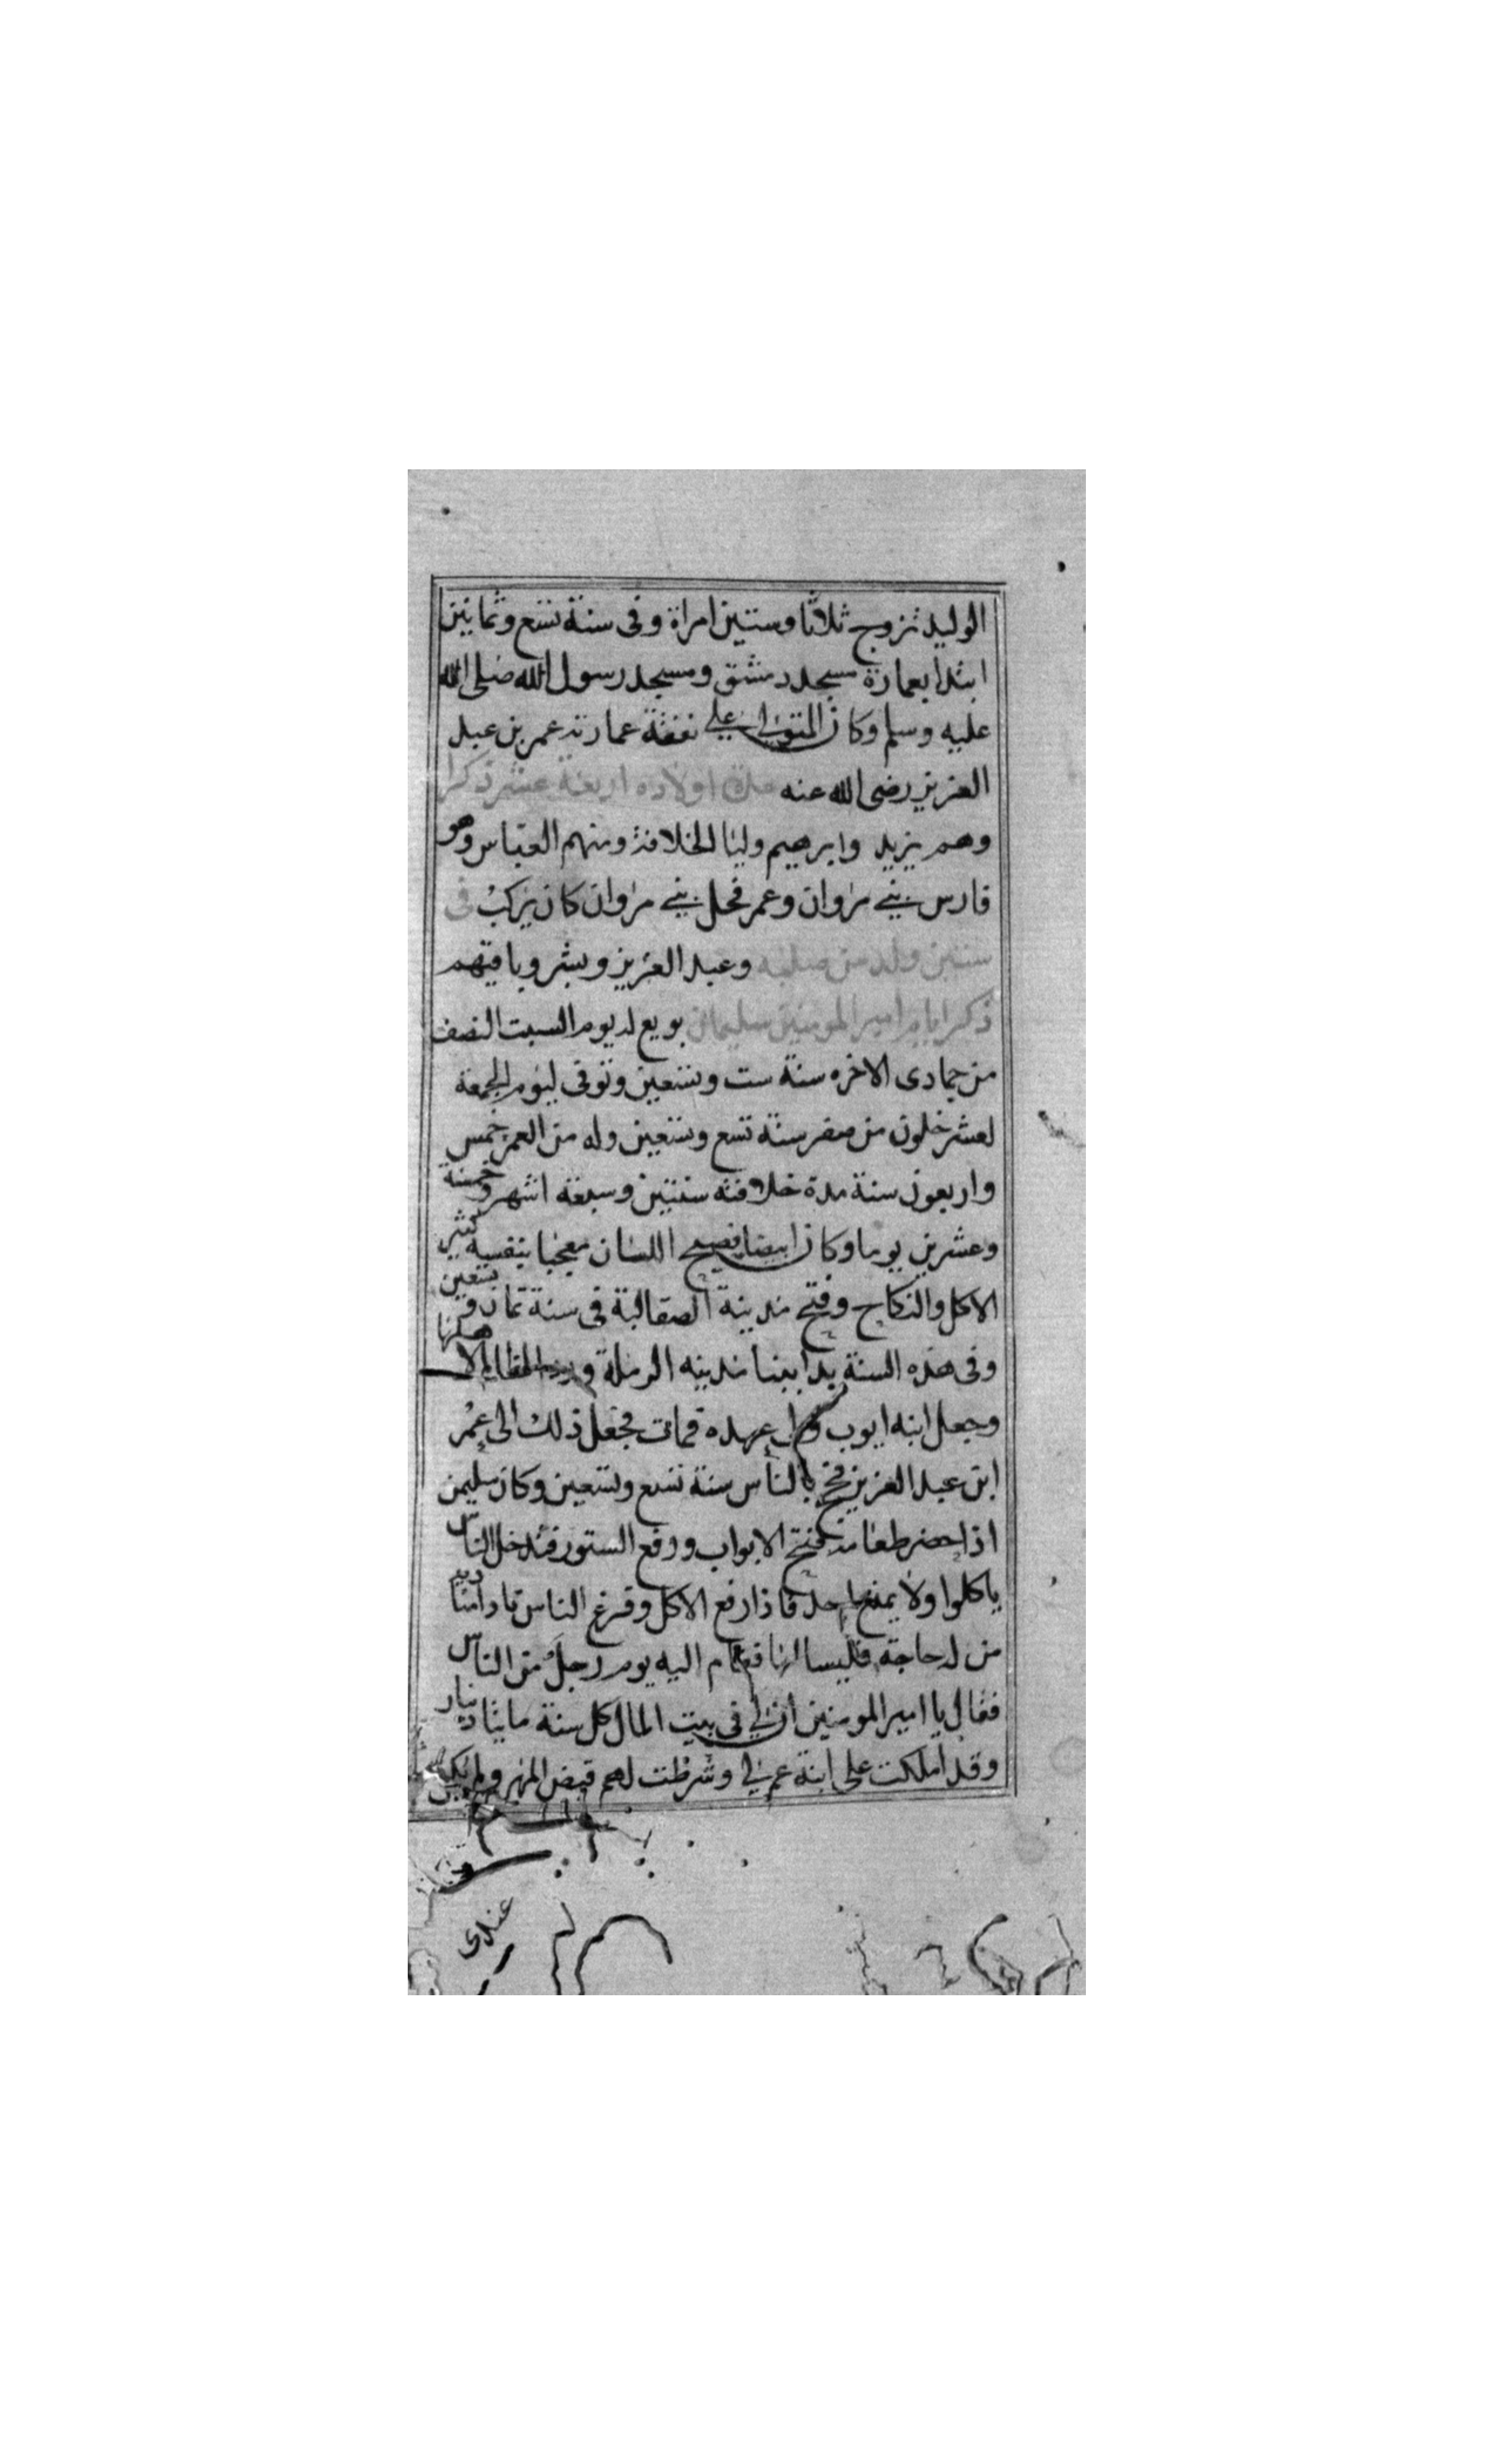 الوليد تزوج ثلاثا وستين امراة وفى سنة تسع وثمانين
ابتدا بعمارة مسجد دمشق ومسجد رسول الله صلى الله
عليه وسلم وكان المتولى على نفقة عمارته عمر بن عبد
العزيز رضى الله عنه اولاده اربعة عشر ذكرا
وهم يزيد وابرهيم وليا الخلافة ومنهم العباس وهو
فارس بنى مروان وعمر فحل بنى مروان كان يركب فى
ستين ولد من صلبه وعبد العزيز وبشر وباقيهم
ذكر ايام امير المومنين سليمان بويع له يوم السبت النصف
من جمادى الاخره سنة ست وتسعين وتوفى ليوم الجمعة
لعشر خلون من صفر سنة تسع وتسعين وله من العمر خمس
واربعون سنة مدة خلافته سنتين وسبعة اشهر وخمسة
وعشرين يوما وكان ابيضا فصيح اللسان معجبا بنفسه كثير
الاكل والنكاح وفتح مدينة الصقالبة فى سنة ثمان وتسعين
وفى هذه السنة بدا ببنا مدينه الرملة
وجعل ابنه ايوب ولى عهده فمات فجعل ذلك الى عمر
ابن عبد العزيز فحج بالناس سنة تسع وتسعين وكان سليمن
اذا حضر طعامه فتح الابواب ورفع الستور فتدخل الناس
ياكلوا ولا يمنع احد فاذا رفع الاكل وفرغ الناس نادا مناديه
من له حاجة فليسالها فقام اليه يوم رجل من الناس
فقال يا امير المومنين ان لى فى بيت المال كل سنة مايتا دينار
وقد املكت على ابنة عم لى وشرطت لهم قبض المهر ولم يكن
عندى